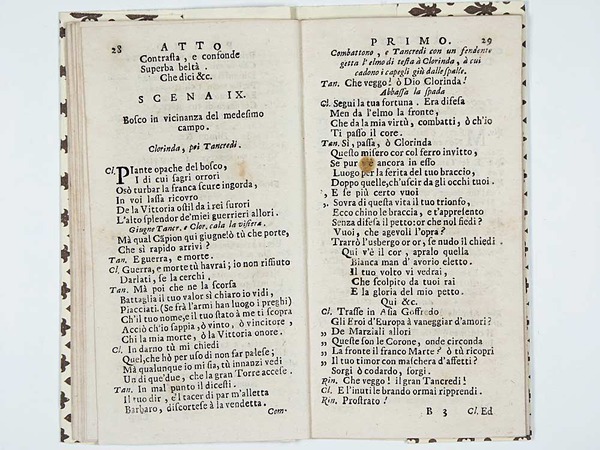 28 ATTO
Contrasta, e confonde
Superba beltà.
Che dici &c.
SCENA IX.
Bosco in vicinanza del medesimo
campo.
Clorinda, poi Tancredi.
Cl. Piante opache del bosco,
I di cui sagri orrori
Osò turbar la franca scure ingorda,
In voi lassa ricovro
De la Vittoria ostil da i rei furori
L'alto splendor de' miei guerrieri allori.
Giugne Tancr. e Clor. cala la visiera.
Mà qual Cāpion qui giugne! ò tù che porte,
Che sì rapido arrivi?
Tan. E guerra, e morte.
Cl. Guerra, e morte tù havrai; io non rifiuto
Darlati, se la cerchi.
Tan. Mà poi che ne la scorsa
Battaglia il tuo valor sì chiaro io vidi,
Piacciati (Se frà l'armi han luogo i preghi)
Ch'il tuo nome, e il tuo stato à me ti scopra
Acciò ch'io sappia, ò vinto, ò vincitore,
Chi la mia morte, ò la Vittoria onore.
Cl. In darno tù mi chiedi
Quel, che hò per uso di non far palese;
Mà qualunque io mi sia, tù innanzi vedi
Un di que' due, che la gran Torre accese.
Tan. In mal punto il dicesti.
Il tuo dir, e'l tacer di par m'alletta
Barbaro, discortese à la vendetta.
Com-
PRIMO. 29
Combattono, e Tancredi con un fendente
getta l'elmo di testa à Clorinda, à cui
cadono i capegli giù dalle spalle.
Tan. Che veggo! ò Dio Clorinda!
Abbassa la spada
Cl. Segui la tua fortuna. Era difesa
Men da l'elmo la fronte,
Che da la mia virtù, combatti, ò ch'io
Ti passo il core.
Tan. Sì, passa, ò Clorinda
Questo misero cor col ferro invitto,
Se pur v'è ancora in esso
Luogo per la ferita del tuo braccio,
Doppo quelle, ch'uscir da gli occhi tuoi.
, E se più certo vuoi
,. Sovra di questa vita il tuo trionfo,
Ecco chino le braccia, e t'appresento
Senza difesa il petto: or che nol fiedi?
Vuoi, che agevoli l'opra?
Trarrò l'usbergo or or, se nudo il chiedi.
Qui v'è il cor, apralo quella
Bianca man d'avorio eletto.
Il tuo volto vi vedrai,
Che scolpito da tuoi rai
E la gloria del mio petto.
Qui &c.
Cl. Trasse in Asia Goffredo
Gli Eroi d'Europa à vaneggiar d'amori?
„ De Marziali allori
„ Queste son le Corone, onde circonda
„ La fronte il franco Marte? ò tù ricopri
„ Il tuo timor con maschera d'affetti?
Sorgi ò codardo, sorgi.
Rin. Che veggo! il gran Tancredi!
Cl. E l'inutile brando ormai riprendi.
Rin. Prostrato!
B 3 Cl. Ed